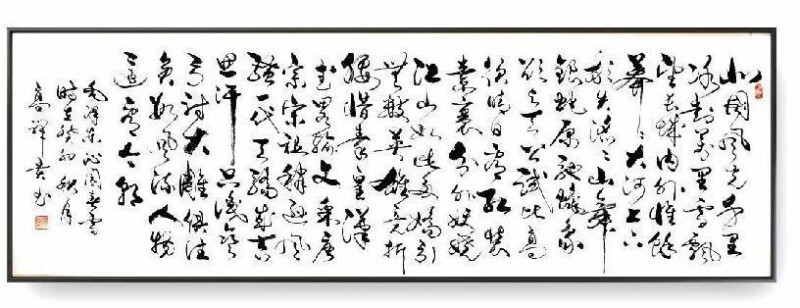 北国风光千里
冰封万里雪飘
望长城内外惟馀
莽莽大河上下
顿失滔滔山舞
银蛇原驰蜡象
欲与天公试比高
须晴日看红装
素裹分外妖娆
江山如此多娇引
无数英雄竞折
腰惜秦皇汉
武略输文采唐
宗宋祖稍逊风
骚一代天骄成吉
思汗只识弯
弓射大雕俱往
矣数风流人物
还看今朝
毛泽东沁园春雪
时在癸卯秋月
高祥贵书